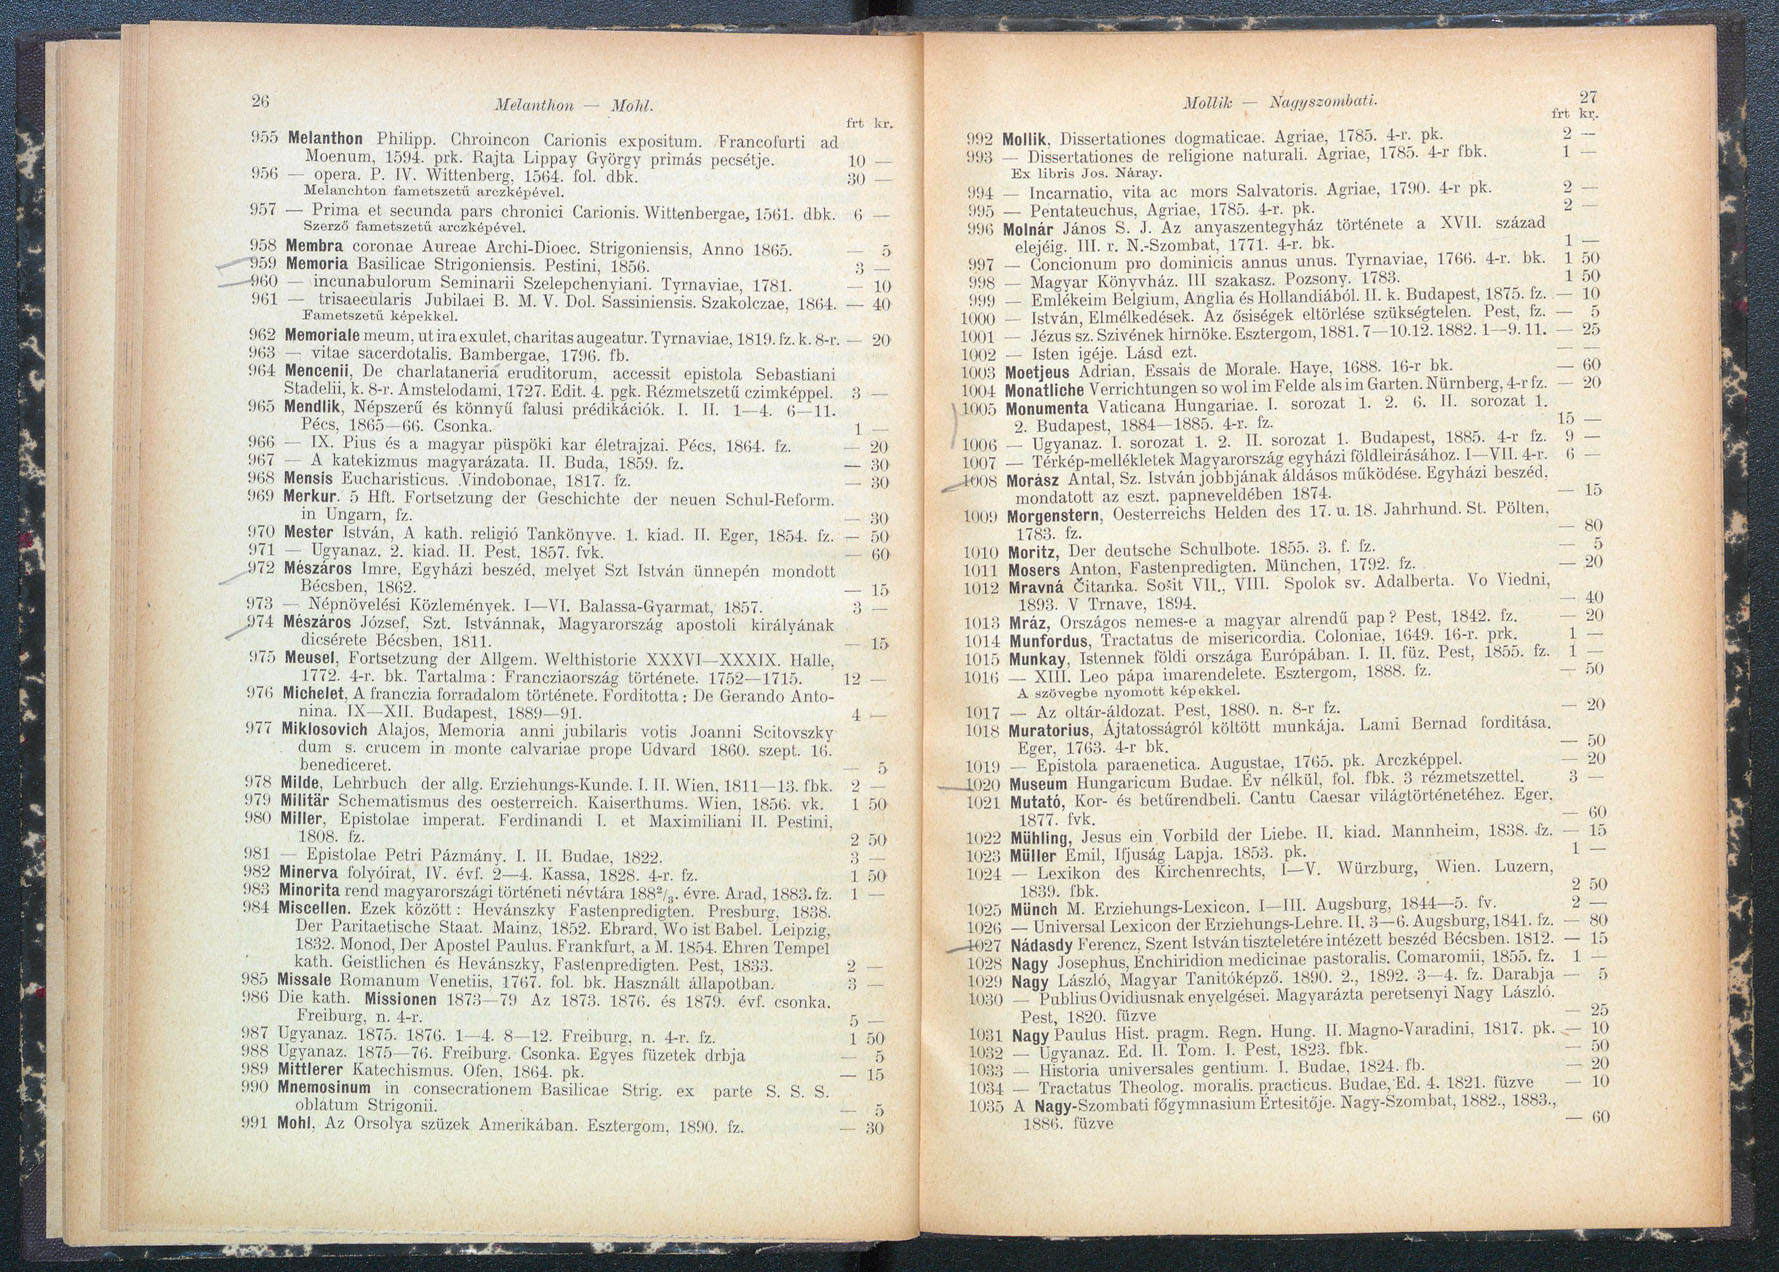 26
Melanthon — Mohl.
frt kr.
955 Melanthon Philipp. Chroincon Carionis expositum. Francofurti ad
Moenum, 1594. prk. Rajta Lippay György primás pecsétje. 10 —
956 — opera. P. IV. Wittenberg, 1564. fol. dbk. 30 —
Melanchton fametszetű arczképével.
957 — Prima et secunda pars chronici Carionis. Wittenbergae, 1561. dbk. 6 —
Szerző fametszetű arczképével.
958 Membra coronae Aureae Archi-Dioec. Strigoniensis, Anno 1865. — 5
959 Memoria Basilicae Strigoniensis. Pestini, 1856. 3 —
960 — incunabulorum Seminarii Szelepchenyiani. Tyrnaviae, 1781. — 10
961 — trisaecularis Jubilaei B. M. V. Dol. Sassiniensis. Szakolczae, 1864. — 40
Fametszetű képekkel.
962 Memoriale meum, ut ira exulet, charitas augeatur. Tyrnaviae, 1819. fz. k. 8-r. — 20
963 — vitae sacerdotalis. Bambergae, 1796. fb.
964 Mencenii, De charlataneria eruditorum, accessit epistola Sebastiani
Stadelii, k. 8-r. Amstelodami, 1727. Edit. 4. pgk. Rézmetszetű czimképpel. 3 —
965 Mendlik, Népszerű és könnyű falusi prédikációk. I. II. 1—4. 6—11.
Pécs, 1865—66. Csonka. 1 —
966 — IX. Pius és a magyar püspöki kar életrajzai. Pécs, 1864. fz. — 20
967 — A katekizmus magyarázata. II. Buda, 1859. fz. — 30
968 Mensis Eucharisticus. Vindobonae, 1817. fz. — 30
969 Merkur. 5 Hft. Fortsetzung der Geschichte der neuen Schul-Reform.
in Ungarn, fz. — 30
970 Mester István, A kath. religió Tankönyve. 1. kiad. II. Eger, 1854. fz. — 50
971 — Ugyanaz. 2. kiad. II. Pest, 1857. fvk. — 60
972 Mészáros Imre, Egyházi beszéd, melyet Szt István ünnepén mondott
Bécsben, 1862. — 15
973 — Népnövelési Közlemények. I—VI. Balassa-Gyarmat, 1857. 3 —
974 Mészáros József, Szt. Istvánnak, Magyarország apostoli királyának
dicsérete Bécsben, 1811. — 15
975 Meusel, Fortsetzung der Allgem. Welthistorie XXXVI—XXXIX. Halle,
1772. 4-r. bk. Tartalma: Francziaország története. 1752—1715. 12 —
976 Michelet, A franczia forradalom története. Forditotta: De Gerando Anto-
nina. IX—XII. Budapest, 1889—91. 4 —
977 Miklosovich Alajos, Memoria anni jubilaris votis Joanni Scitovszky
dum s. crucem in monte calvariae prope Udvard 1860. szept. 16.
benediceret. — 5
978 Milde, Lehrbuch der allg. Erziehungs-Kunde. I. II. Wien, 1811—13. fbk. 2 —
979 Militär Schematismus des oesterreich. Kaiserthums. Wien, 1856. vk. 1 50
980 Miller, Epistolae imperat. Ferdinandi I. et Maximiliani II. Pestini,
1808. fz. 2 50
981 — Epistolae Petri Pázmány. I. II. Budae, 1822. 3 —
982 Minerva folyóirat, IV. évf. 2—4. Kassa, 1828. 4-r. fz. 1 50
983 Minorita rend magyarországi történeti névtára 188²/₃. évre. Arad, 1883. fz. 1 —
984 Miscellen. Ezek között: Hevánszky Fastenpredigten. Presburg, 1838.
Der Paritaetische Staat. Mainz, 1852. Ebrard, Wo ist Babel. Leipzig,
1832. Monod, Der Apostel Paulus. Frankfurt, a M. 1854. Ehren Tempel
kath. Geistlichen és Hevánszky, Fastenpredigten. Pest, 1833. 2 —
985 Missale Romanum Venetiis, 1767. fol. bk. Használt állapotban. 3 —
986 Die kath. Missionen 1873—79 Az 1873. 1876. és 1879. évf. csonka.
Freiburg, n. 4-r. 5 —
987 Ugyanaz. 1875. 1876. 1—4. 8—12. Freiburg, n. 4-r. fz. 1 50
988 Ugyanaz. 1875—76. Freiburg. Csonka. Egyes füzetek drbja — 5
989 Mittlerer Katechismus. Ofen, 1864. pk. — 15
990 Mnemosinum in consecrationem Basilicae Strig. ex parte S. S. S.
oblatum Strigonii. — 5
991 Mohl, Az Orsolya szüzek Amerikában. Esztergom, 1890. fz. — 30
Mollik — Nagyszombati.
27
frt kr.
992 Mollik, Dissertationes dogmaticae. Agriae, 1785. 4-r. pk. 2 —
993 — Dissertationes de religione naturali. Agriae, 1785. 4-r fbk. 1 —
Ex libris Jos. Náray.
994 — Incarnatio, vita ac mors Salvatoris. Agriae, 1790. 4-r pk. 2 —
995 — Pentateuchus, Agriae, 1785. 4-r. pk. 2 —
996 Molnár János S. J. Az anyaszentegyház története a XVII. század
elejéig. III. r. N.-Szombat, 1771. 4-r. bk. 1 —
997 — Concionum pro dominicis annus unus. Tyrnaviae, 1766. 4-r. bk. 1 50
998 — Magyar Könyvház. III szakasz. Pozsony. 1783. 1 50
999 — Emlékeim Belgium, Anglia és Hollandiából. II. k. Budapest, 1875. fz. — 10
1000 — István, Elmélkedések. Az ősiségek eltörlése szükségtelen. Pest, fz. — 5
1001 — Jézus sz. Szivének hirnöke. Esztergom, 1881. 7—10.12. 1882. 1—9. 11. — 25
1002 — Isten igéje. Lásd ezt. — —
1003 Moetjeus Adrian, Essais de Morale. Haye, 1688. 16-r bk. — 60
1004 Monatliche Verrichtungen so wol im Felde als im Garten. Nürnberg, 4-r fz. — 20
1005 Monumenta Vaticana Hungariae. I. sorozat 1. 2. 6. II. sorozat 1.
2. Budapest, 1884—1885. 4-r. fz. 15 —
1006 — Ugyanaz. I. sorozat 1. 2. II. sorozat 1. Budapest, 1885. 4-r fz. 9 —
1007 — Térkép-mellékletek Magyarország egyházi földleirásához. I—VII. 4-r. 6 —
1008 Morász Antal, Sz. István jobbjának áldásos működése. Egyházi beszéd,
mondatott az eszt. papneveldében 1874. — 15
1009 Morgenstern, Oesterreichs Helden des 17. u. 18. Jahrhund. St. Pölten,
1783. fz. — 80
1010 Moritz, Der deutsche Schulbote. 1855. 3. f. fz. — 5
1011 Mosers Anton, Fastenpredigten. München, 1792. fz. — 20
1012 Mravná Čitanka. Sošit VII., VIII. Spolok sv. Adalberta. Vo Viedni,
1893. V Trnave, 1894. — 40
1013 Mráz, Országos nemes-e a magyar alrendű pap? Pest, 1842. fz. — 20
1014 Munfordus, Tractatus de misericordia. Coloniae, 1649. 16-r. prk. 1 —
1015 Munkay, Istennek földi országa Európában. I. II. füz. Pest, 1855. fz. 1 —
1016 — XIII. Leo pápa imarendelete. Esztergom, 1888. fz. — 50
A szövegbe nyomott képekkel.
1017 — Az oltár-áldozat. Pest, 1880. n. 8-r fz. — 20
1018 Muratorius, Ájtatosságról költött munkája. Lami Bernad forditása.
Eger, 1763. 4-r bk. — 50
1019 — Epistola paraenetica. Augustae, 1765. pk. Arczképpel. — 20
1020 Museum Hungaricum Budae. Év nélkül, fol. fbk. 3 rézmetszettel. 3 —
1021 Mutató, Kor- és betűrendbeli. Cantu Caesar világtörténetéhez. Eger,
1877. fvk. — 60
1022 Mühling, Jesus ein Vorbild der Liebe. II. kiad. Mannheim, 1838. fz. — 15
1023 Müller Emil, Ifjuság Lapja. 1853. pk. 1 —
1024 — Lexikon des Kirchenrechts, I—V. Würzburg, Wien. Luzern,
1839. fbk. 2 50
1025 Münch M. Erziehungs-Lexicon. I—III. Augsburg, 1844—5. fv. 2 —
1026 — Universal Lexicon der Erziehungs-Lehre. II. 3—6. Augsburg, 1841. fz. — 80
1027 Nádasdy Ferencz, Szent István tiszteletére intézett beszéd Bécsben. 1812. — 15
1028 Nagy Josephus, Enchiridion medicinae pastoralis. Comaromii, 1855. fz. 1 —
1029 Nagy László, Magyar Tanitóképző. 1890. 2., 1892. 3—4. fz. Darabja — 5
1030 — Publius Ovidiusnak enyelgései. Magyarázta peretsenyi Nagy László.
Pest, 1820. füzve — 25
1031 Nagy Paulus Hist. pragm. Regn. Hung. II. Magno-Varadini, 1817. pk. — 10
1032 — Ugyanaz. Ed. II. Tom. I. Pest, 1823. fbk. — 50
1033 — Historia universales gentium. I. Budae, 1824. fb. — 20
1034 — Tractatus Theolog. moralis. practicus. Budae, Ed. 4. 1821. füzve — 10
1035 A Nagy-Szombati főgymnasium Értesitője. Nagy-Szombat, 1882., 1883.,
1886. füzve — 60